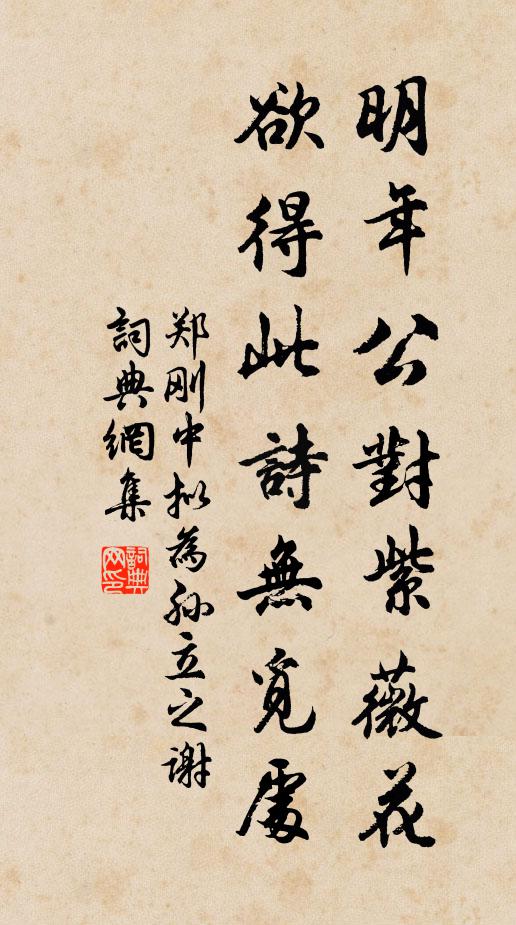 明年公對紫薇花
欲得此詩無覓處
郑刚中拟為孙立之謝
詞典網集
詞典网印